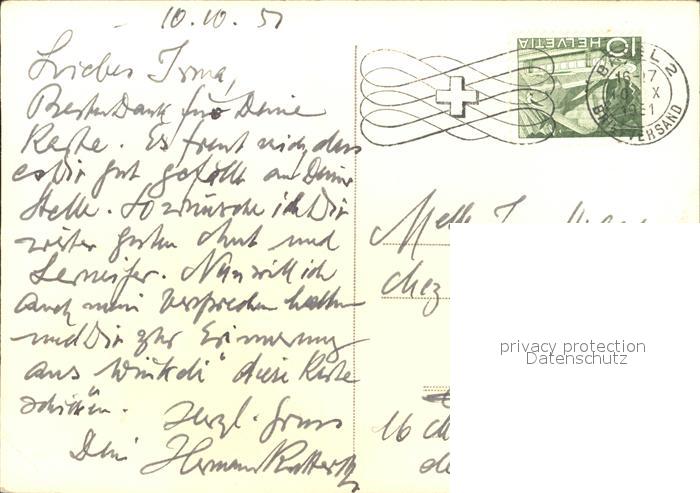 10.10.51
Liebes Irma,
Besten Dank für Deine
Karte. Es freut mich, dass
es Dir gut gefällt an Deiner
Stelle. So wünsche ich Dir
weiter guten Mut und
Lerneifer. Nun will ich
auch mein Versprechen halten
und Dir zur Erinnerung
aus "Winkeli" diese Karte
schicken.
Herzl. Gruss
Dein Hermann
HELVETIA 10
BASEL 2
16-17
10. X
1951
BRIEFVERSAND
Melle
chez
16
privacy protection
Datenschutz